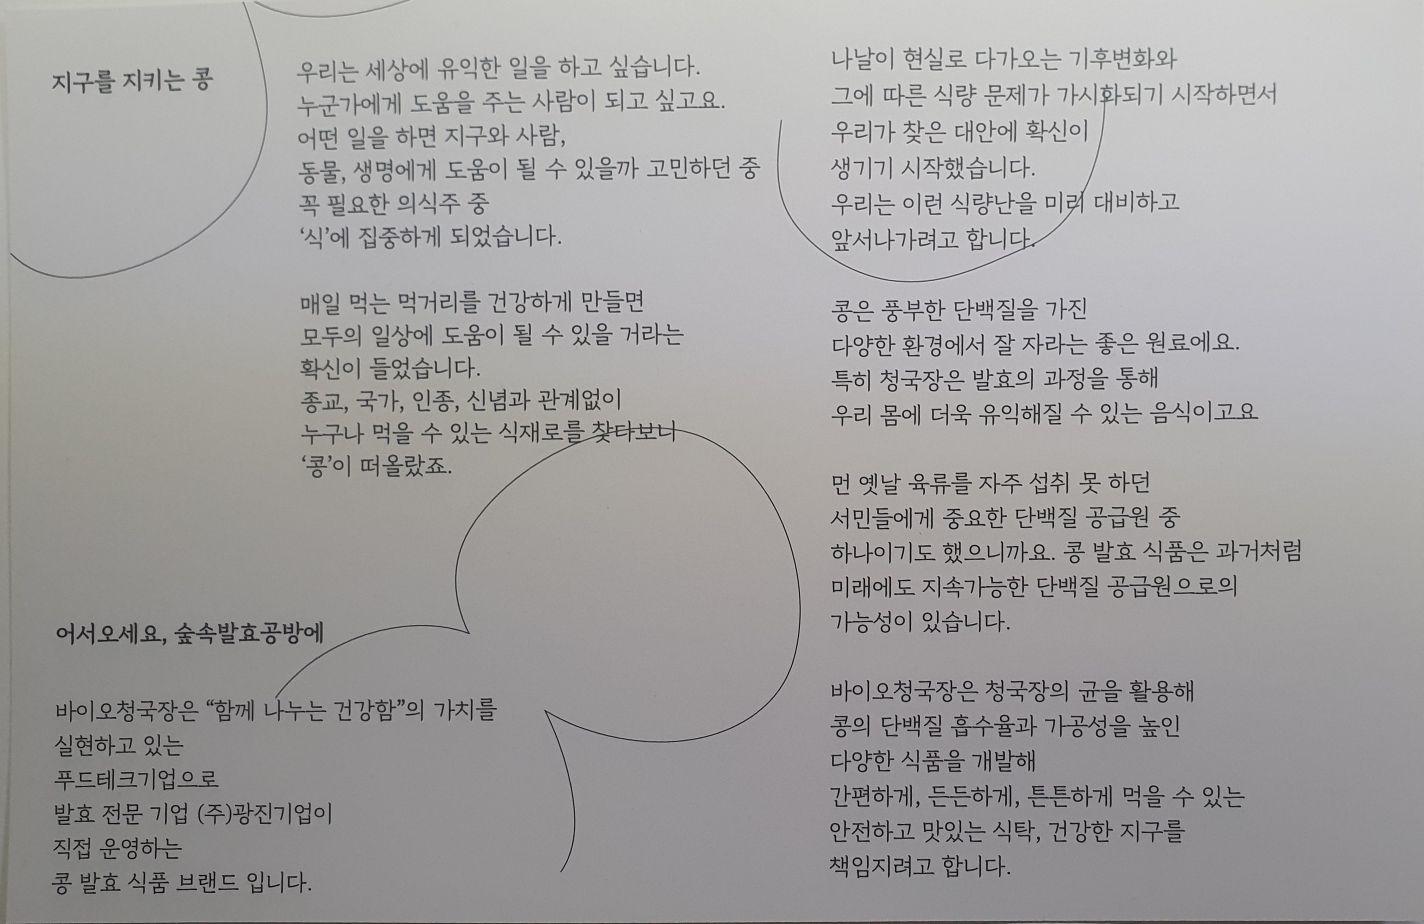 지구를 지키는 콩
우리는 세상에 유익한 일을 하고 싶습니다.
누군가에게 도움을 주는 사람이 되고 싶고요.
어떤 일을 하면 지구와 사람,
동물, 생명에게 도움이 될 수 있을까 고민하던 중
꼭 필요한 의식주 중
‘식’에 집중하게 되었습니다.
매일 먹는 먹거리를 건강하게 만들면
모두의 일상에 도움이 될 수 있을 거라는
확신이 들었습니다.
종교, 국가, 인종, 신념과 관계없이
누구나 먹을 수 있는 식재로를 찾다보니
‘콩’이 떠올랐죠.
어서오세요, 숲속발효공방에
바이오청국장은 “함께 나누는 건강함”의 가치를
실현하고 있는
푸드테크기업으로
발효 전문 기업 (주)광진기업이
직접 운영하는
콩 발효 식품 브랜드 입니다.
나날이 현실로 다가오는 기후변화와
그에 따른 식량 문제가 가시화되기 시작하면서
우리가 찾은 대안에 확신이
생기기 시작했습니다.
우리는 이런 식량난을 미리 대비하고
앞서나가려고 합니다.
콩은 풍부한 단백질을 가진
다양한 환경에서 잘 자라는 좋은 원료에요.
특히 청국장은 발효의 과정을 통해
우리 몸에 더욱 유익해질 수 있는 음식이고요
먼 옛날 육류를 자주 섭취 못 하던
서민들에게 중요한 단백질 공급원 중
하나이기도 했으니까요. 콩 발효 식품은 과거처럼
미래에도 지속가능한 단백질 공급원으로의
가능성이 있습니다.
바이오청국장은 청국장의 균을 활용해
콩의 단백질 흡수율과 가공성을 높인
다양한 식품을 개발해
간편하게, 든든하게, 튼튼하게 먹을 수 있는
안전하고 맛있는 식탁, 건강한 지구를
책임지려고 합니다.